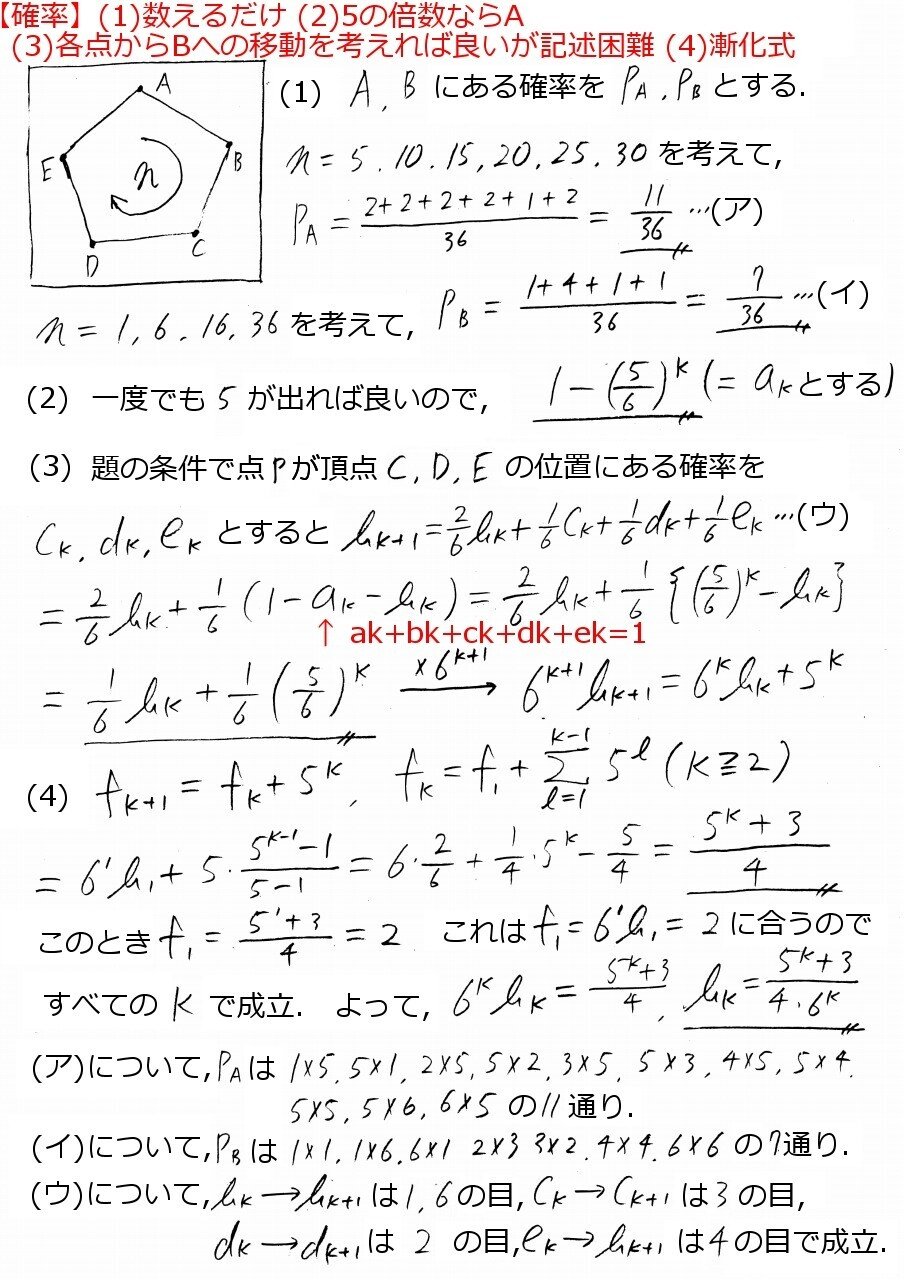 【確率】(1)数えるだけ (2)5の倍数ならA
(3)各点からBへの移動を考えれば良いが記述困難 (4)漸化式
A
B
C
D
E
n
(1) A, B にある確率を PA, PB とする.
n = 5, 10, 15, 20, 25, 30 を考えて,
PA = (2+2+2+2+1+2)/36 = 11/36 …(ア)
n = 1, 6, 16, 36 を考えて, PB = (1+4+1+1)/36 = 7/36 …(イ)
(2) 一度でも 5 が出れば良いので, 1-(5/6)^k (= ak とする)
(3) 題の条件で点Pが頂点 C, D, E の位置にある確率を
Ck, dk, ek とすると bk+1 = 2/6 bk + 1/6 Ck + 1/6 dk + 1/6 ek …(ウ)
= 2/6 bk + 1/6 (1-ak-bk) = 2/6 bk + 1/6 {(5/6)^k - bk}
↑ ak+bk+ck+dk+ek=1
= 1/6 bk + 1/6 (5/6)^k ×6^k+1 → 6^k+1 bk+1 = 6^k bk + 5^k
(4) fk+1 = fk + 5^k, fk = f1 + Σ[l=1, k-1] 5^l (k≧2)
= 6^1 b1 + 5・(5^k-1 - 1)/(5-1) = 6・2/6 + 1/4・5^k - 5/4 = (5^k + 3)/4
このとき f1 = (5^1+3)/4 = 2 これは f1 = 6^1 b1 = 2 に合うので
すべての k で成立. よって, 6^k bk = (5^k+3)/4, bk = (5^k+3)/(4・6^k)
(ア)について,PAは 1×5, 5×1, 2×5, 5×2, 3×5, 5×3, 4×5, 5×4,
5×5, 5×6, 6×5 の11通り.
(イ)について,PBは 1×1, 1×6, 6×1 2×3 3×2, 4×4, 6×6 の7通り.
(ウ)について,bk→bk+1 は1, 6の目, Ck→Ck+1 は3の目,
dk→dk+1は 2 の目,ek→bk+1 は4の目で成立.